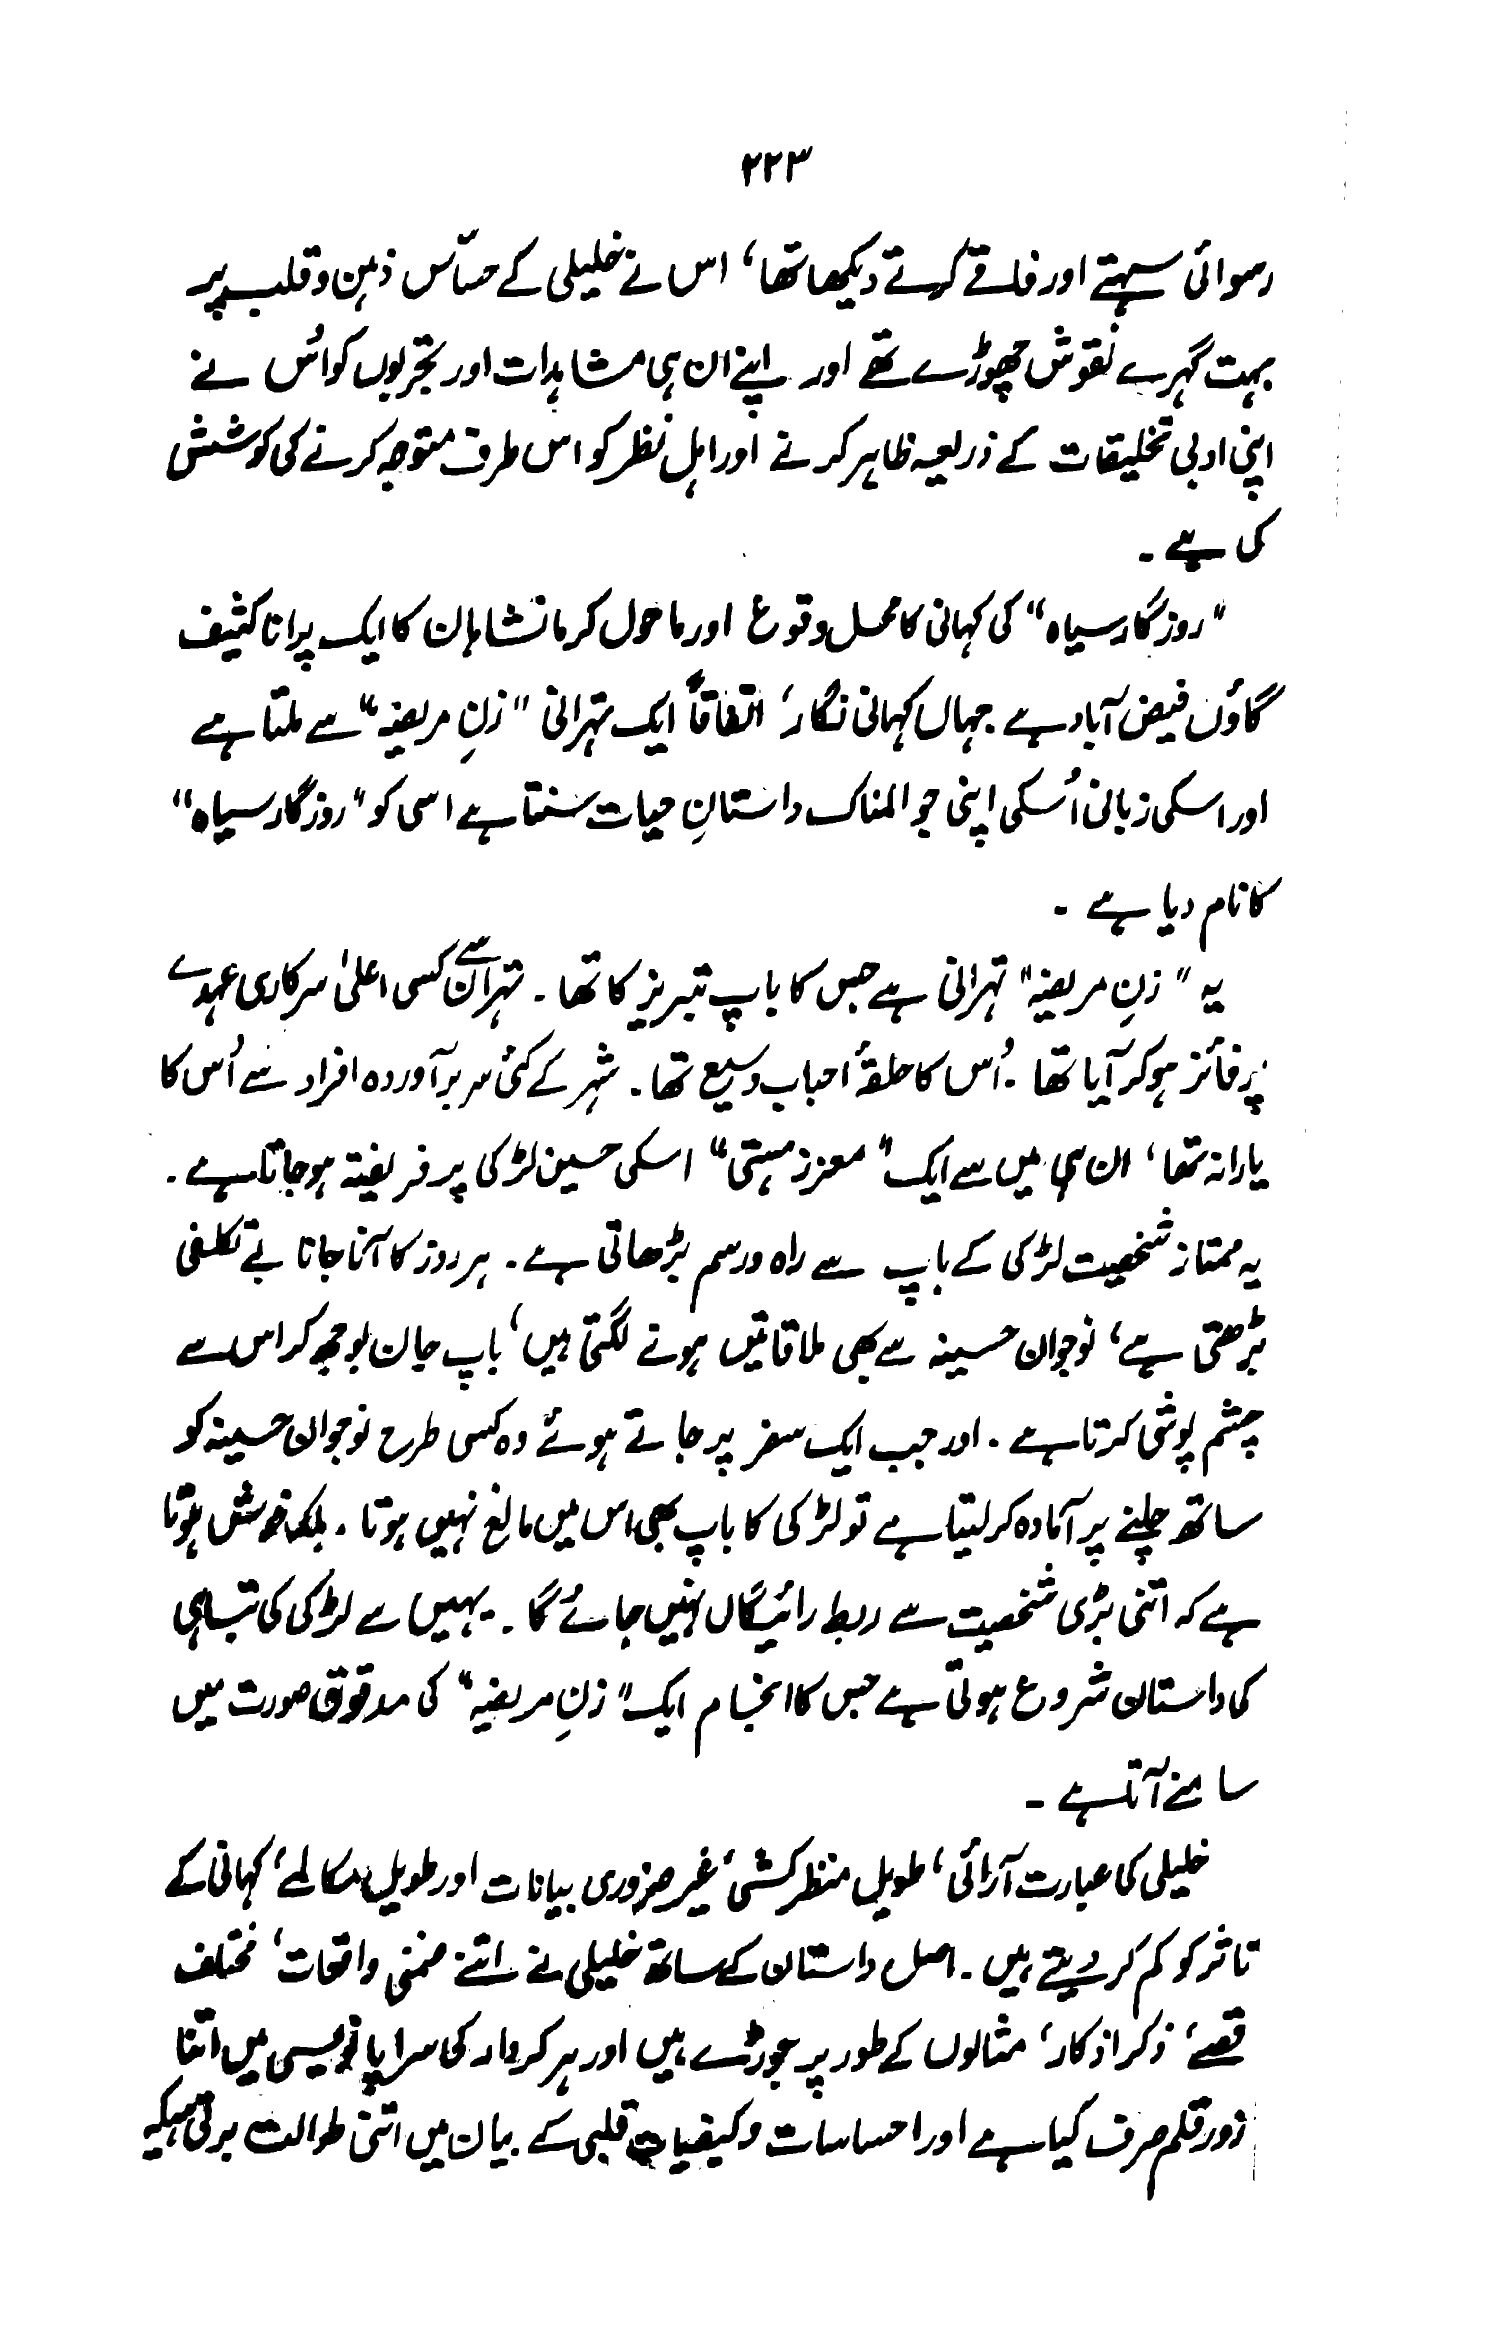 ۲۲۳
رسوائی سہتے اور فاقے کرتے دیکھا تھا، اس نے خلیلی کے حسّاس ذہن و قلب پر
بہت گہرے نقوش چھوڑے تھے اور اپنے ان ہی مشاہدات اور تجربوں کو اُس نے
اپنی ادبی تخلیقات کے ذریعہ ظاہر کرنے اور اہل نظر کو اس طرف متوجہ کرنے کی کوشش
کی ہے ۔
"روزگار سیاہ" کی کہانی کا محل وقوع اور ماحول کرمانشاہان کا ایک پرانا کثیف
گاؤں فیض آباد ہے جہاں کہانی نگار، اتفاقاً ایک تہرانی "زنِ مریضہ" سے ملتا ہے
اور اسکی زبانی اُسکی اپنی جو المناک داستانِ حیات سنتا ہے اسی کو "روزگار سیاہ"
کا نام دیا ہے ۔
یہ "زنِ مریضہ" تہرانی ہے جس کا باپ تبریز کا تھا ۔ تہران سے کسی اعلیٰ سرکاری عہدے
پر فائز ہو کر آیا تھا ۔ اُس کا حلقۂ احباب وسیع تھا ۔ شہر کے کئی سربرآوردہ افراد سے اُس کا
یارانہ تھا، ان ہی میں سے ایک "معزز ہستی" اسکی حسین لڑکی پر فریفتہ ہو جاتا ہے ۔
یہ ممتاز شخصیت لڑکی کے باپ سے راہ و رسم بڑھاتی ہے ۔ ہر روز کا آنا جانا بے تکلفی
بڑھتی ہے، نوجوان حسینہ سے بھی ملاقاتیں ہونے لگتی ہیں، باپ جان بوجھ کر اس سے
چشم پوشی کرتا ہے ۔ اور جب ایک سفر پر جاتے ہوئے وہ کسی طرح نوجوان حسینہ کو
ساتھ چلنے پر آمادہ کر لیتا ہے تو لڑکی کا باپ بھی اس میں مانع نہیں ہوتا ۔ بلکہ خوش ہوتا
ہے کہ اتنی بڑی شخصیت سے ربط رائیگاں نہیں جائے گا ۔ یہیں سے لڑکی کی تباہی
کی داستان شروع ہوتی ہے جس کا انجام ایک "زنِ مریضہ" کی مدقوق صورت میں
سامنے آتا ہے ۔
خلیلی کی عبارت آرائی، طویل منظر کشی، غیر ضروری بیانات اور طویل مکالمے، کہانی کے
تاثر کو کم کر دیتے ہیں ۔ اصل داستان کے ساتھ خلیلی نے اتنے ضمنی واقعات، مختلف
قصے، ذکر اذکار، مثالوں کے طور پر جوڑے ہیں اور ہر کردار کی سراپا نویسی میں اتنا
زور قلم صرف کیا ہے اور احساسات و کیفیات قلبی کے بیان میں اتنی طوالت برتی ہے کہ